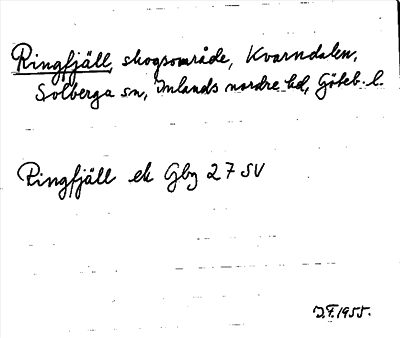 Ringfjäll, skogsområde, Kvarndalen,
Solberga sn, Inlands nordre hd, Göteb. l.
Ringfjäll ek Gbg 27 SV
J.F. 1955.